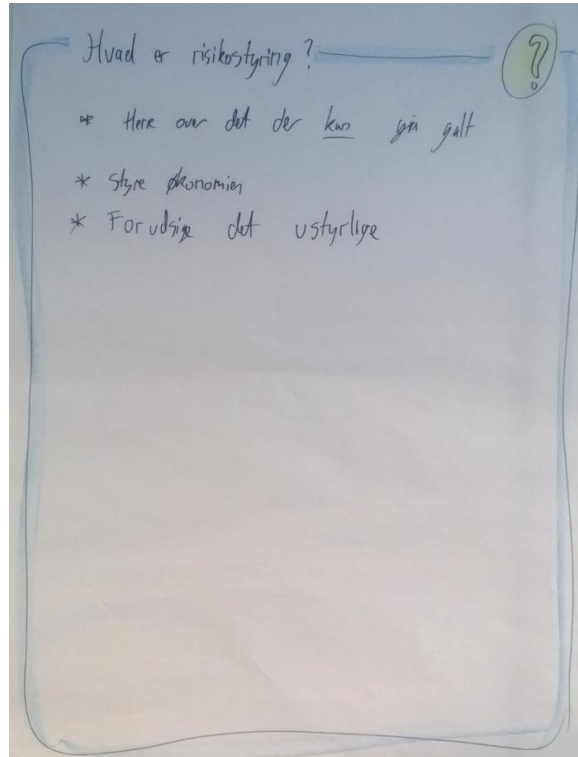 Hvad er risikostyring? ?
* Herre over det der kan gå galt
* Styre økonomien
* Forudsige det ustyrlige